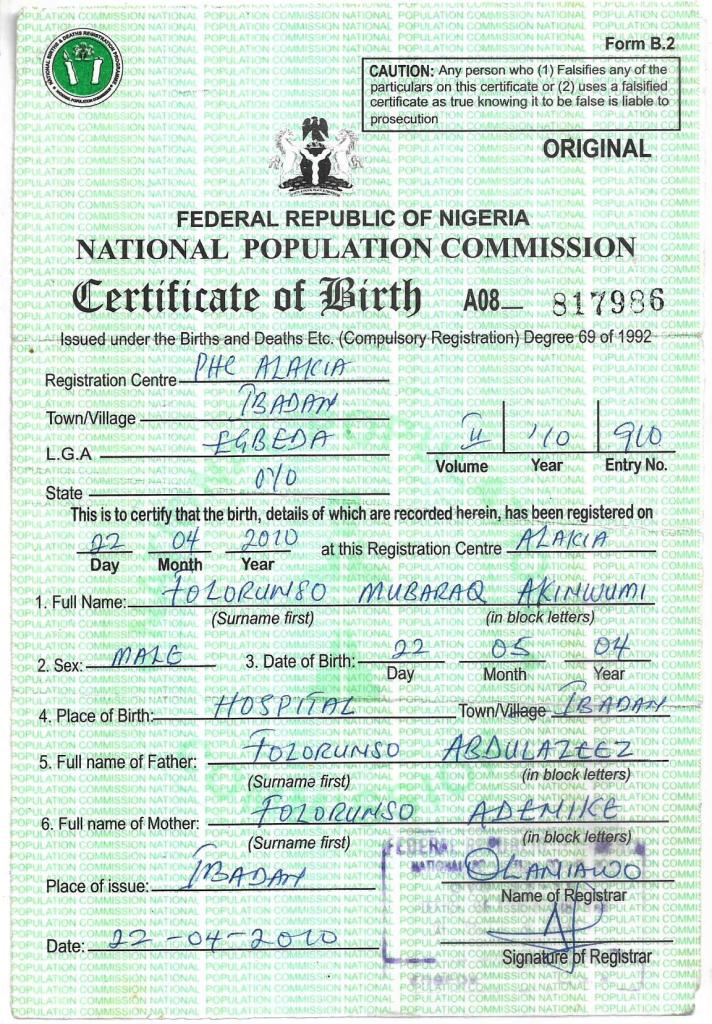 Form B.2
CAUTION: Any person who (1) Falsifies any of the
particulars on this certificate or (2) uses a falsified
certificate as true knowing it to be false is liable to
prosecution
ORIGINAL
FEDERAL REPUBLIC OF NIGERIA
NATIONAL POPULATION COMMISSION
Certificate of Birth A08— 817986
Issued under the Births and Deaths Etc. (Compulsory Registration) Degree 69 of 1992
Registration Centre PHC ALAKIA
Town/Village IBADAN
L.G.A EGBEDA
II '10 910
Volume Year Entry No.
State OYO
This is to certify that the birth, details of which are recorded herein, has been registered on
22 04 2010 at this Registration Centre ALAKIA
Day Month Year
1. Full Name: FOLORUNSO MUBARAQ AKINWUMI
(Surname first) (in block letters)
2. Sex: MALE 3. Date of Birth: 22 05 04
Day Month Year
4. Place of Birth: HOSPITAL Town/Village IBADAN
5. Full name of Father: FOLORUNSO ABDULAZEEZ
(Surname first) (in block letters)
6. Full name of Mother: FOLORUNSO ADENIKE
(Surname first) (in block letters)
Place of issue: IBADAN OLANIAWO
Name of Registrar
Date: 22-04-2010
Signature of Registrar